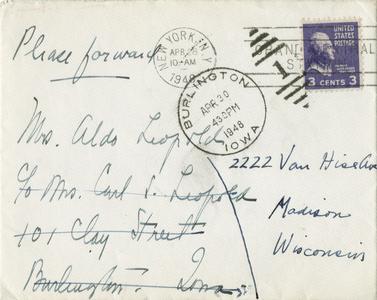 Please forward
NEW YORK, N.Y.
APR 28
10-AM
1948
GRAND CENTRAL
UNITED
STATES
POSTAGE
3 CENTS 3
BURLINGTON
APR 30
430PM
1948
IOWA
Mrs. Aldo Leopold
c/o Mrs. Carl S. Leopold
101 Clay Street
Burlington. Iowa.
2222 Van Hise Ave
Madison
Wisconsin